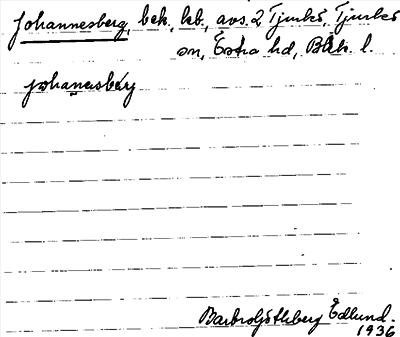 Johannesberg, bek. kb., avs. 2 Tjurkö, Tjurkö
sn, Östra hd, Blek. l.
johanesbérj
Barbro Edlund.
1936